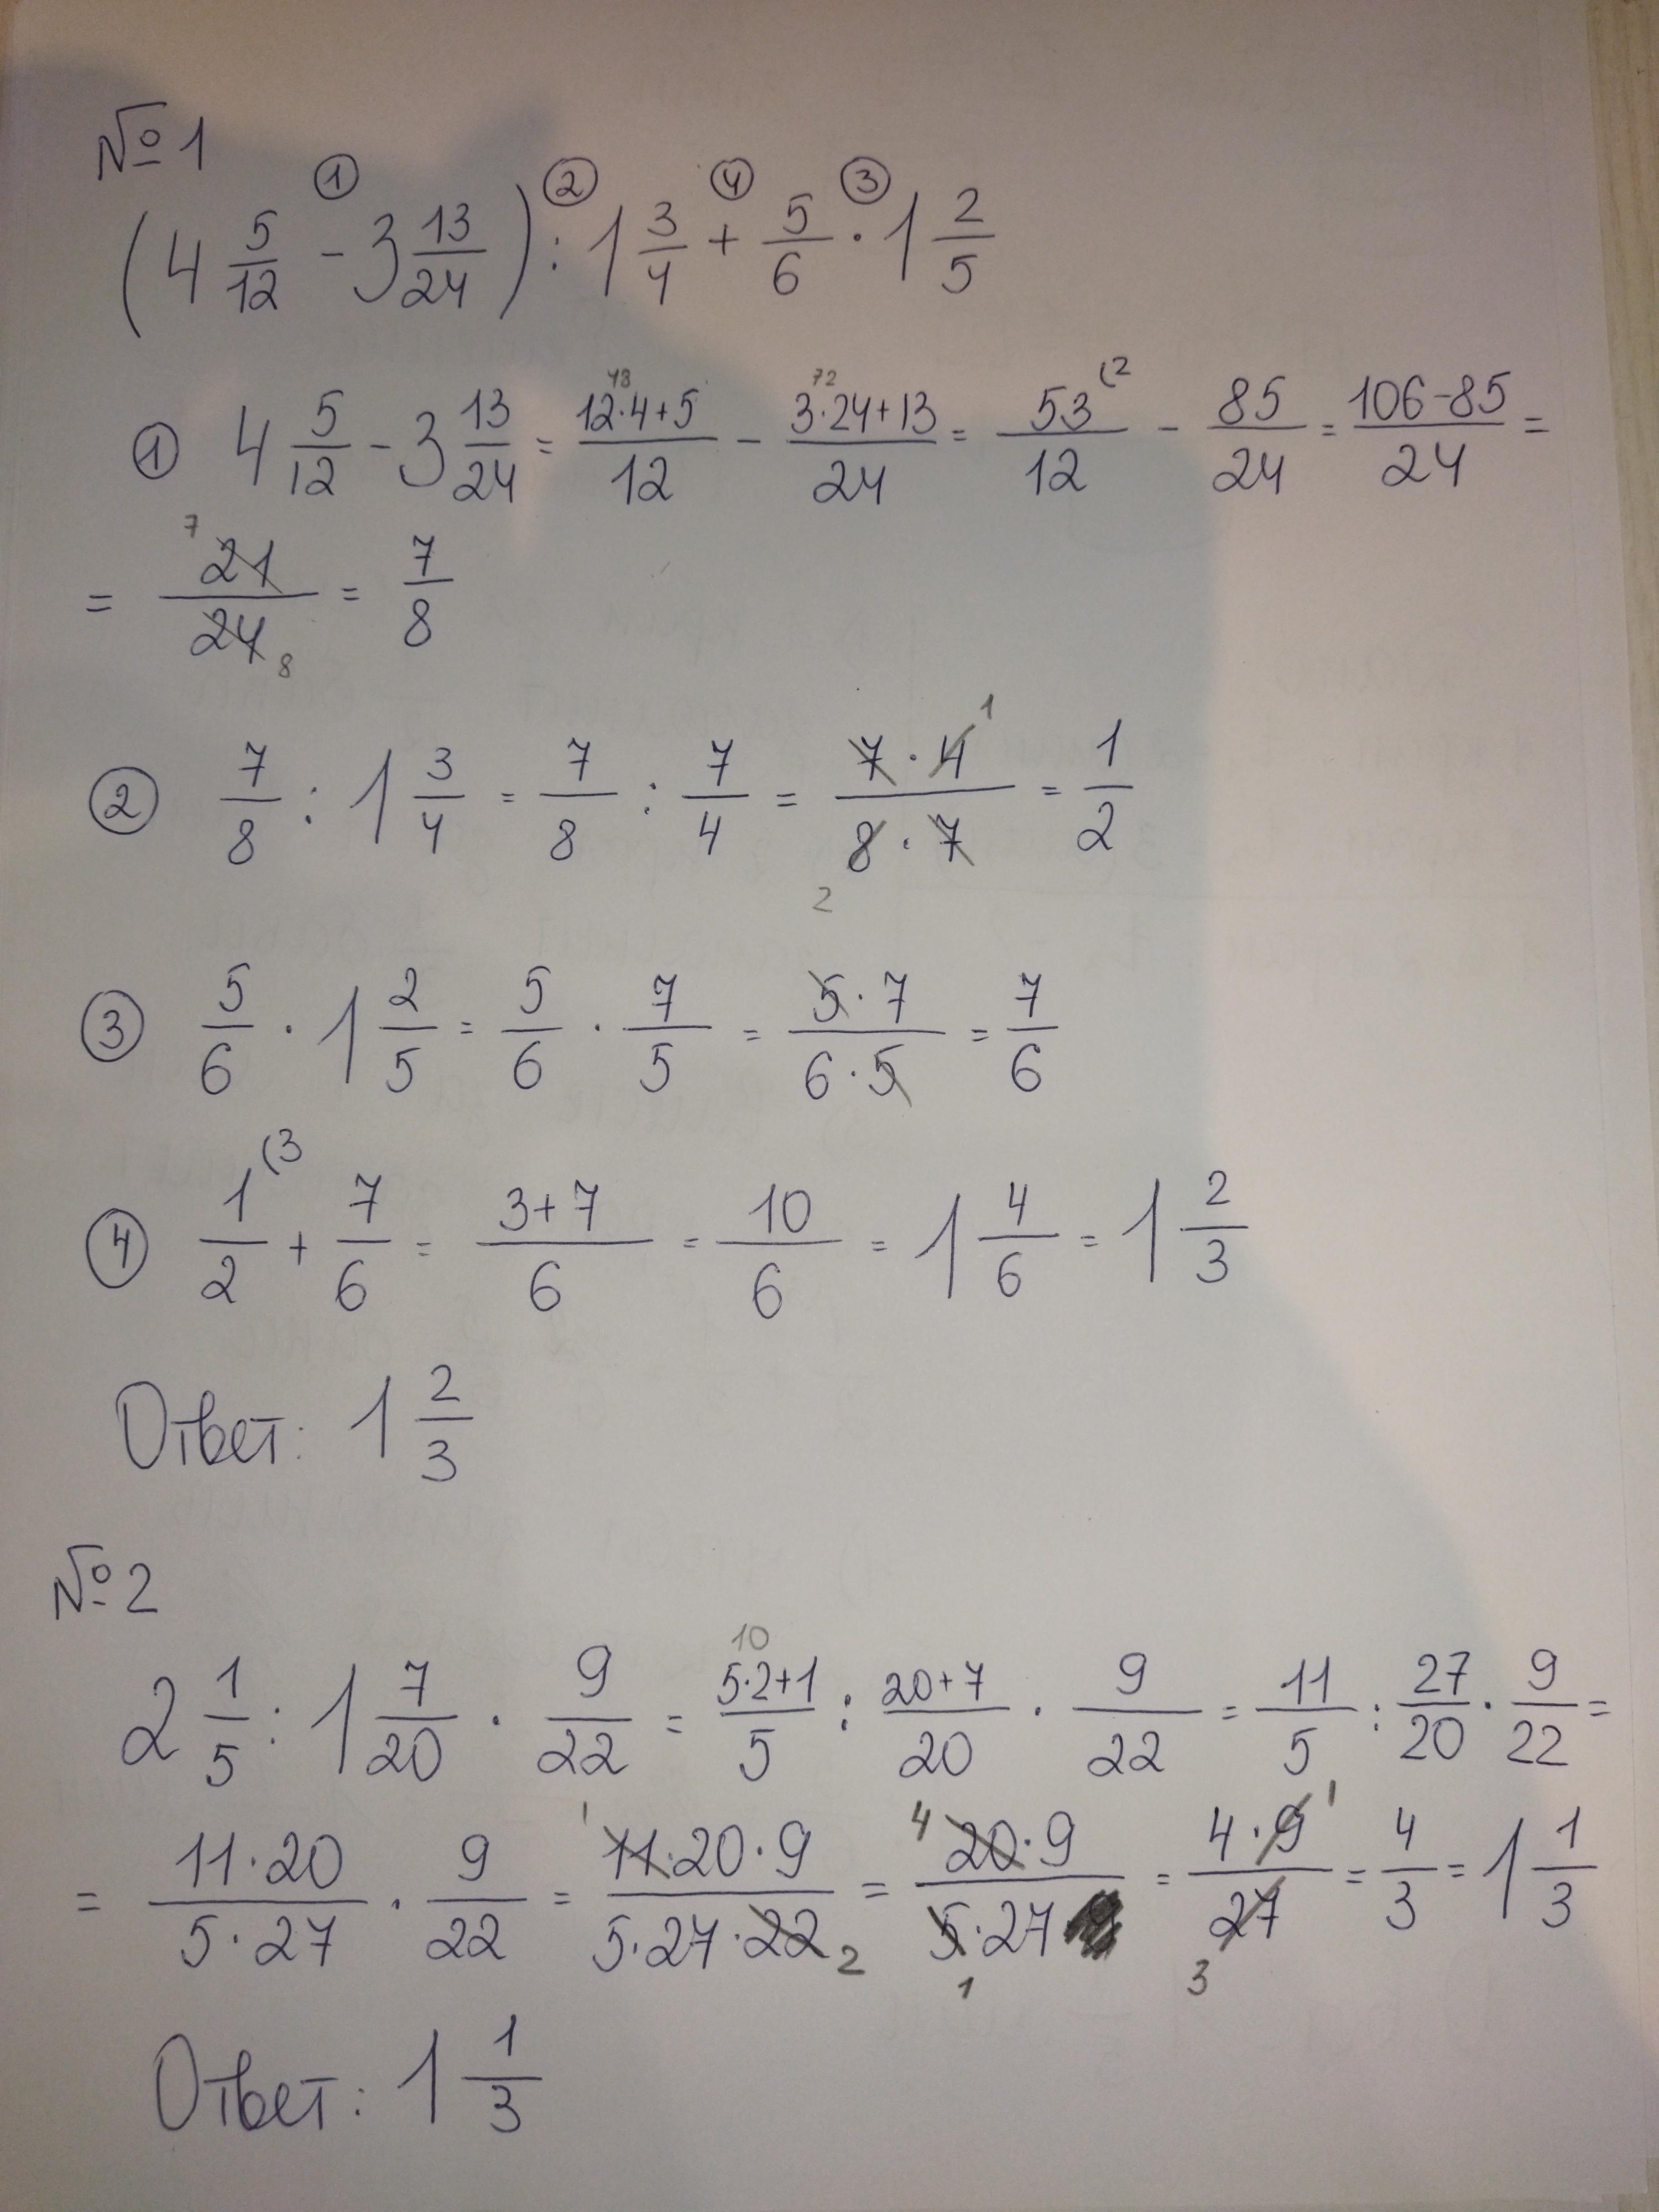 №1
① ② ④ ③
(4 5/12 - 3 13/24) : 1 3/4 + 5/6 · 1 2/5
48 72
① 4 5/12 - 3 13/24 = (12·4+5)/12 - (3·24+13)/24 = 53/12 (2 - 85/24 = (106-85)/24 =
= 7 21/24 8 = 7/8
② 7/8 : 1 3/4 = 7/8 : 7/4 = (7·4 1)/(8·7) 2 = 1/2
③ 5/6 · 1 2/5 = 5/6 · 7/5 = (5·7)/(6·5) = 7/6
④ 1/2 (3 + 7/6 = (3+7)/6 = 10/6 = 1 4/6 = 1 2/3
Ответ: 1 2/3
№2
10
2 1/5 : 1 7/20 · 9/22 = (5·2+1)/5 : (20+7)/20 · 9/22 = 11/5 : 27/20 · 9/22 =
= (11·20)/(5·27) · 9/22 = (1 11·20·9)/(5·27·22 2) = (4 20·9)/(5 1·27) = (4·9 1)/(27 3) = 4/3 = 1 1/3
Ответ: 1 1/3